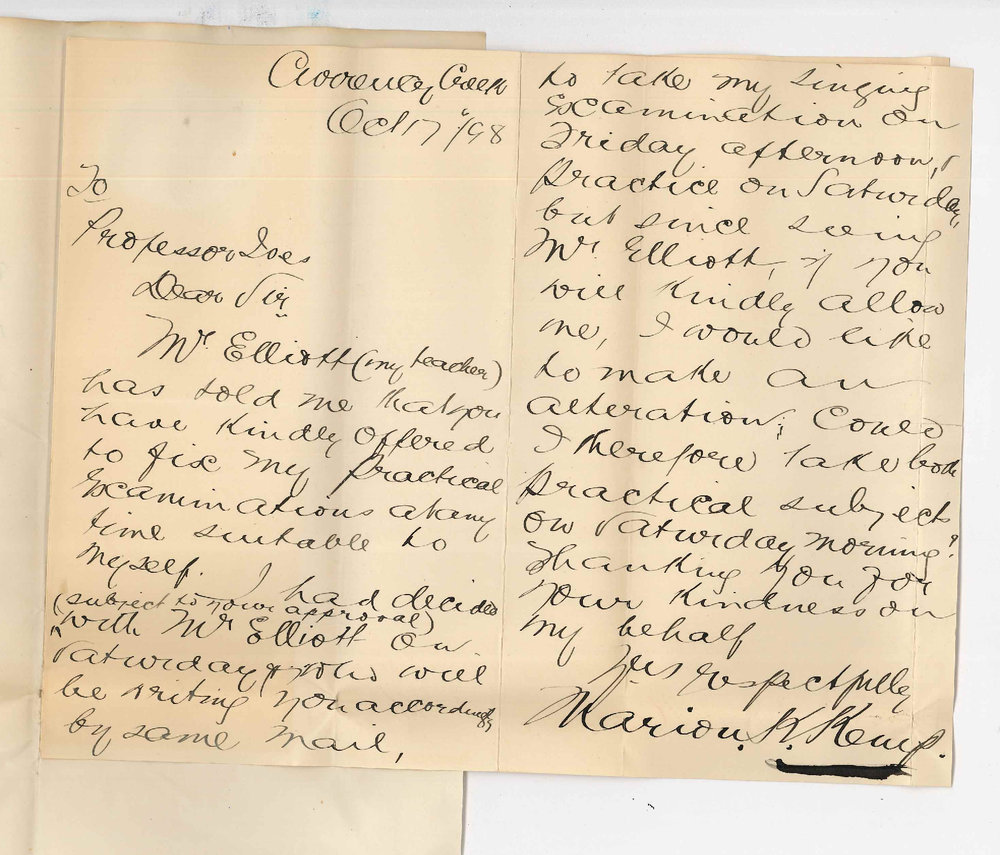 Creek
Oct 17th/98
To
Professor Ives
Dear Sir
Mr. Elliott (my teacher)
has told me that you
have kindly offered
to fix my practical
Examinations at any
time suitable to
myself. I had decided
(subject to your approval)
with Mr Elliott on
Saturday & who will
be writing you accordingly,
by same mail,
to take my singing
Examination on
Friday afternoon, &
practice on Saturday,
but since seeing
Mr. Elliott, if you
will kindly allow
me, I would like
to make an
alteration; Could
I therefore take both
practical subjects
on Saturday morning?
Thanking you for
your kindness on
my behalf
Yrs respectfully
Marion. K. Kemp.